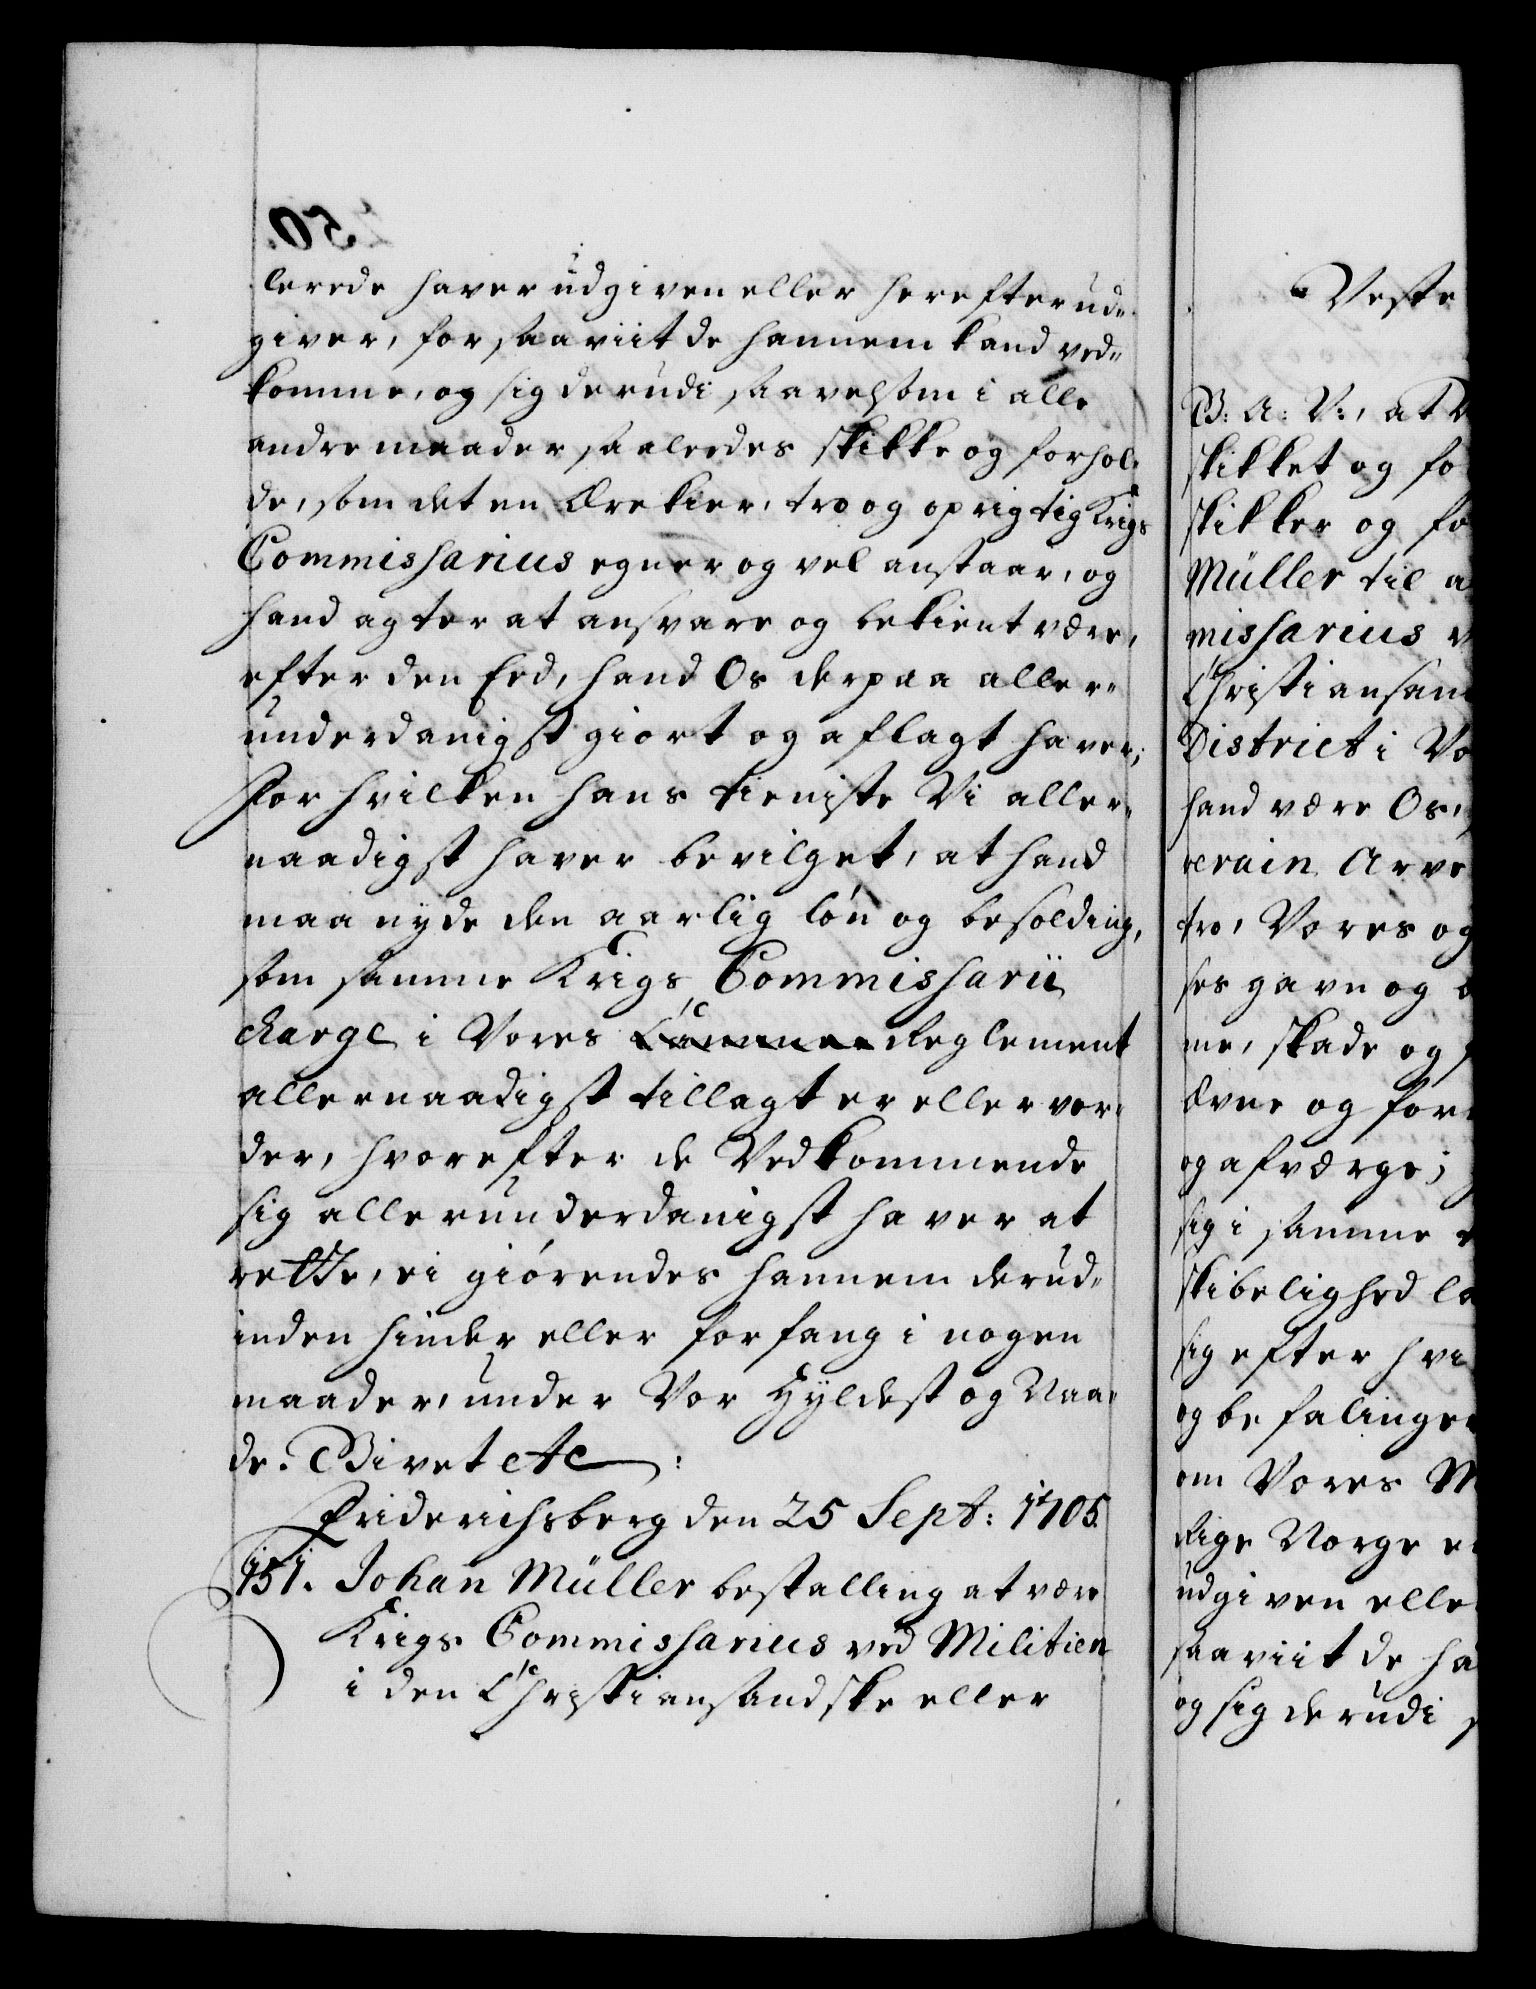 lerede haver udgiven eller herefter ud-
giver, for saaviit de hannem kand ved-
komme, og sig derudi saavelsom i alle
andre maader saaledes skikke og forhol-
de, som det en Ærekier, tro og oprigtig Krigs
Commissarius egner og vel anstaar, og
hand agter at ansvare og bekient være,
efter den Eed, hand Os derpaa aller-
underdanigst giort og aflagt haver;
For hvilken hans tieniste Vi aller-
naadigst haver bevilget, at hand
maa nyde den aarlig lón og besolding,
som samme Krigs Commissarii
charge i Vores Reglement
allernaadigst tillagt er eller vor-
der, hvorefter de Vedkommende
sig allerunderdanigst haver at
rette, ei giórendes hannem derud-
inden hinder eller forfang i nogen
maader, under Vor Hyldest og Naa-
de. Givet etc:
Friderichsberg den 25 Sept: 1705.
151. Johan Müller bestalling at være
Krigs Commissarius ved Militien
i den Christiansandske eller
Veste
G: A: V:, at V
skikket og fo
skikker og fo
Müller til a
missarius v
Christiansan
District i Vo
hand være Os,
verain Arve
tro, Vores og
ses gavn og
me, skade og
ævne og for
og afværge;
sig i samme
skibelighed la
sig efter hvi
og befalinger
om Vores M
Rige Norge e
udgiven elle
saaviit de ha
og sig derudi s